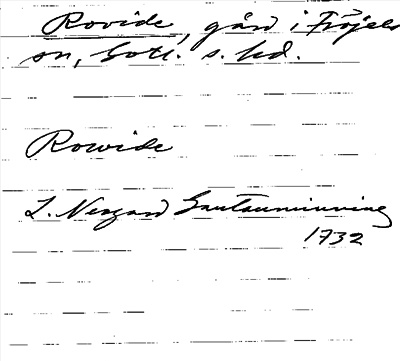 Rovide, gård i Fröjels
sn, Gotl. s. hd.
Rowide
L. Nergard Gautauminning
1732